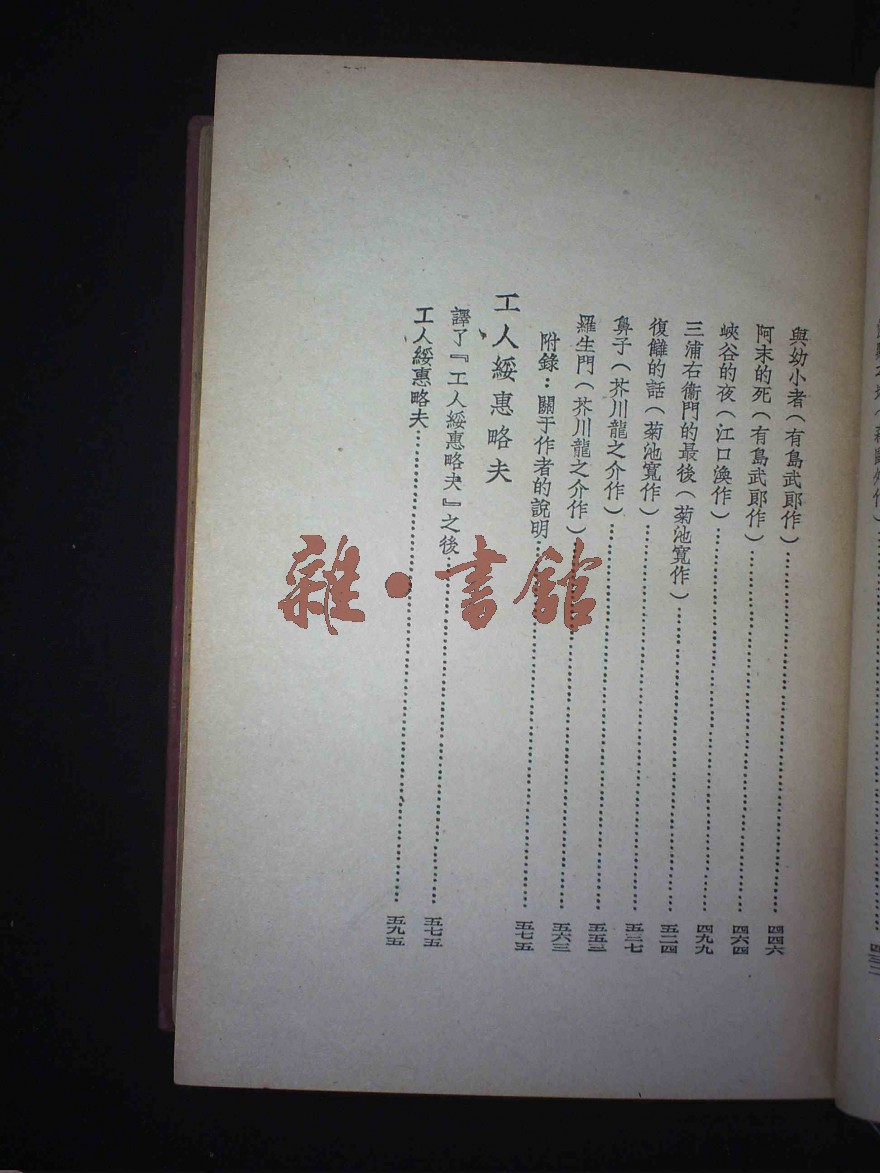 與幼小者(有島武郎作)……四四六
阿末的死(有島武郎作)……四六四
峽谷的夜(江口渙作)……四九九
三浦右衞門的最後(菊池寬作)……五二四
復讎的話(菊池寬作)……五三七
鼻子(芥川龍之介作)……五五二
羅生門(芥川龍之介作)……五六三
附錄:關于作者的說明……五七五
工人綏惠略夫
譯了『工人綏惠略夫』之後……五七五
工人綏惠略夫……五九五
雜·書館